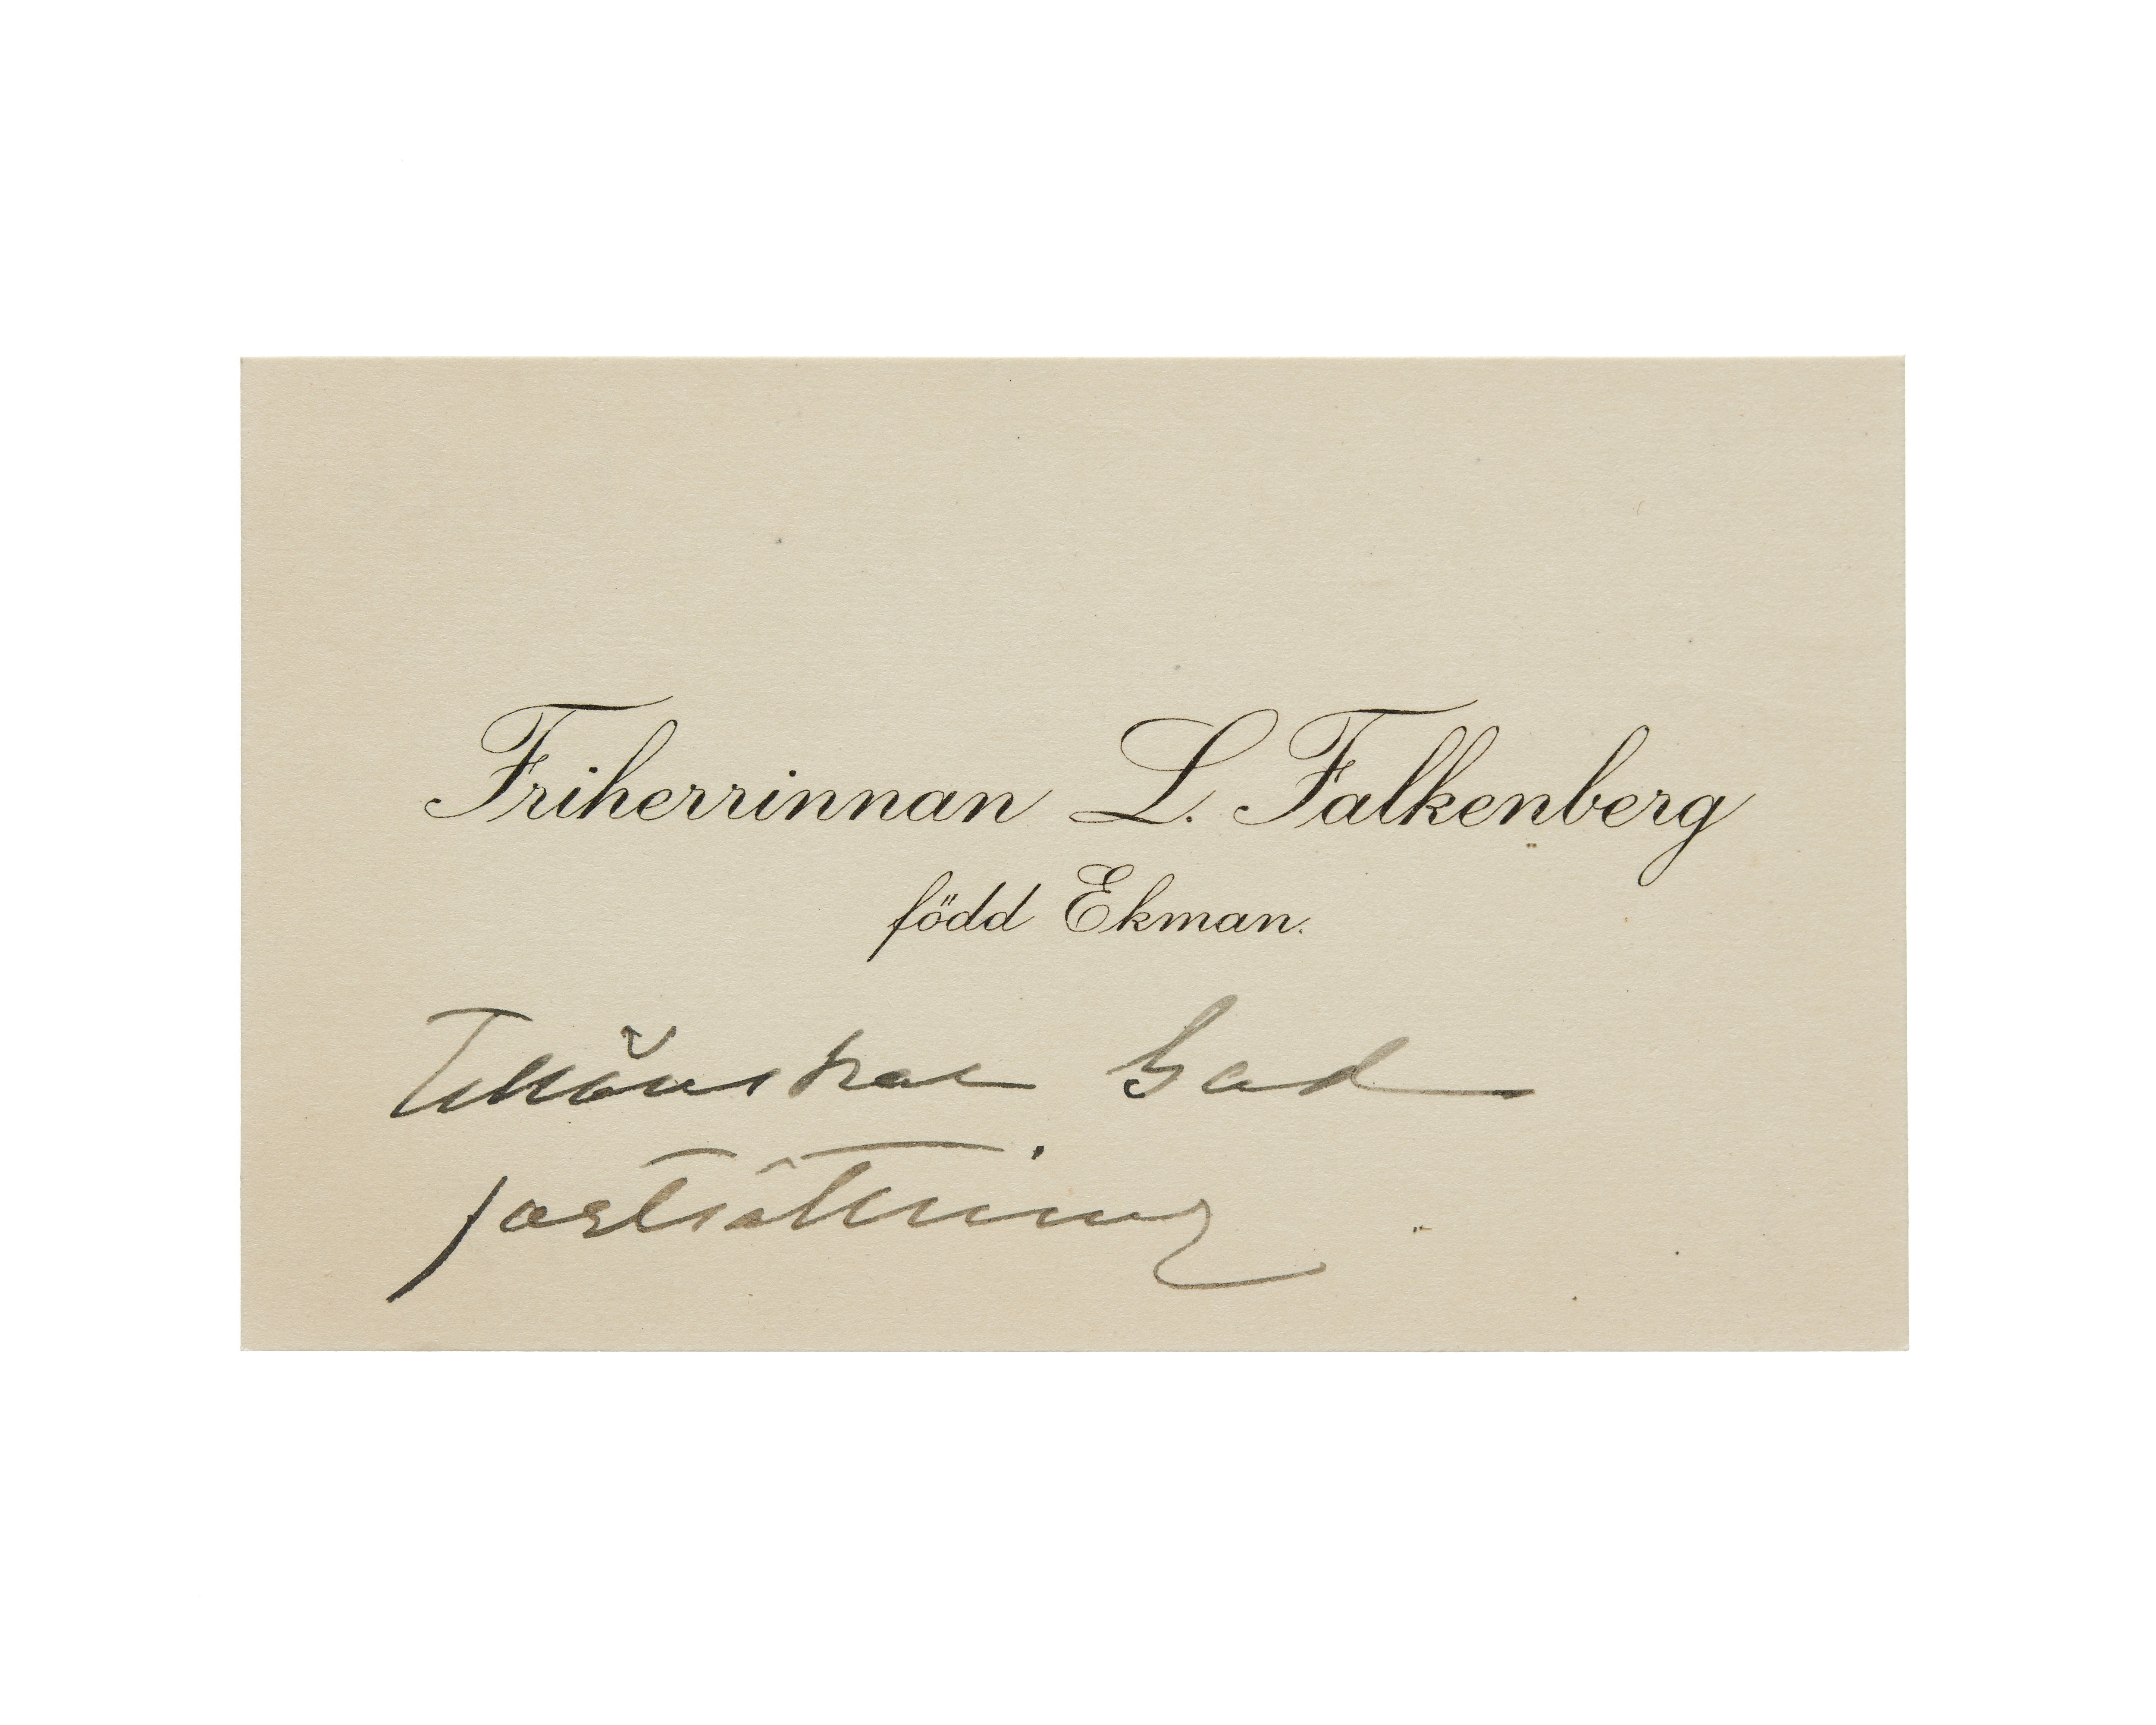 Friherrinnan L. Falkenberg
född Ekman.
Tillönskar God
fortsättning